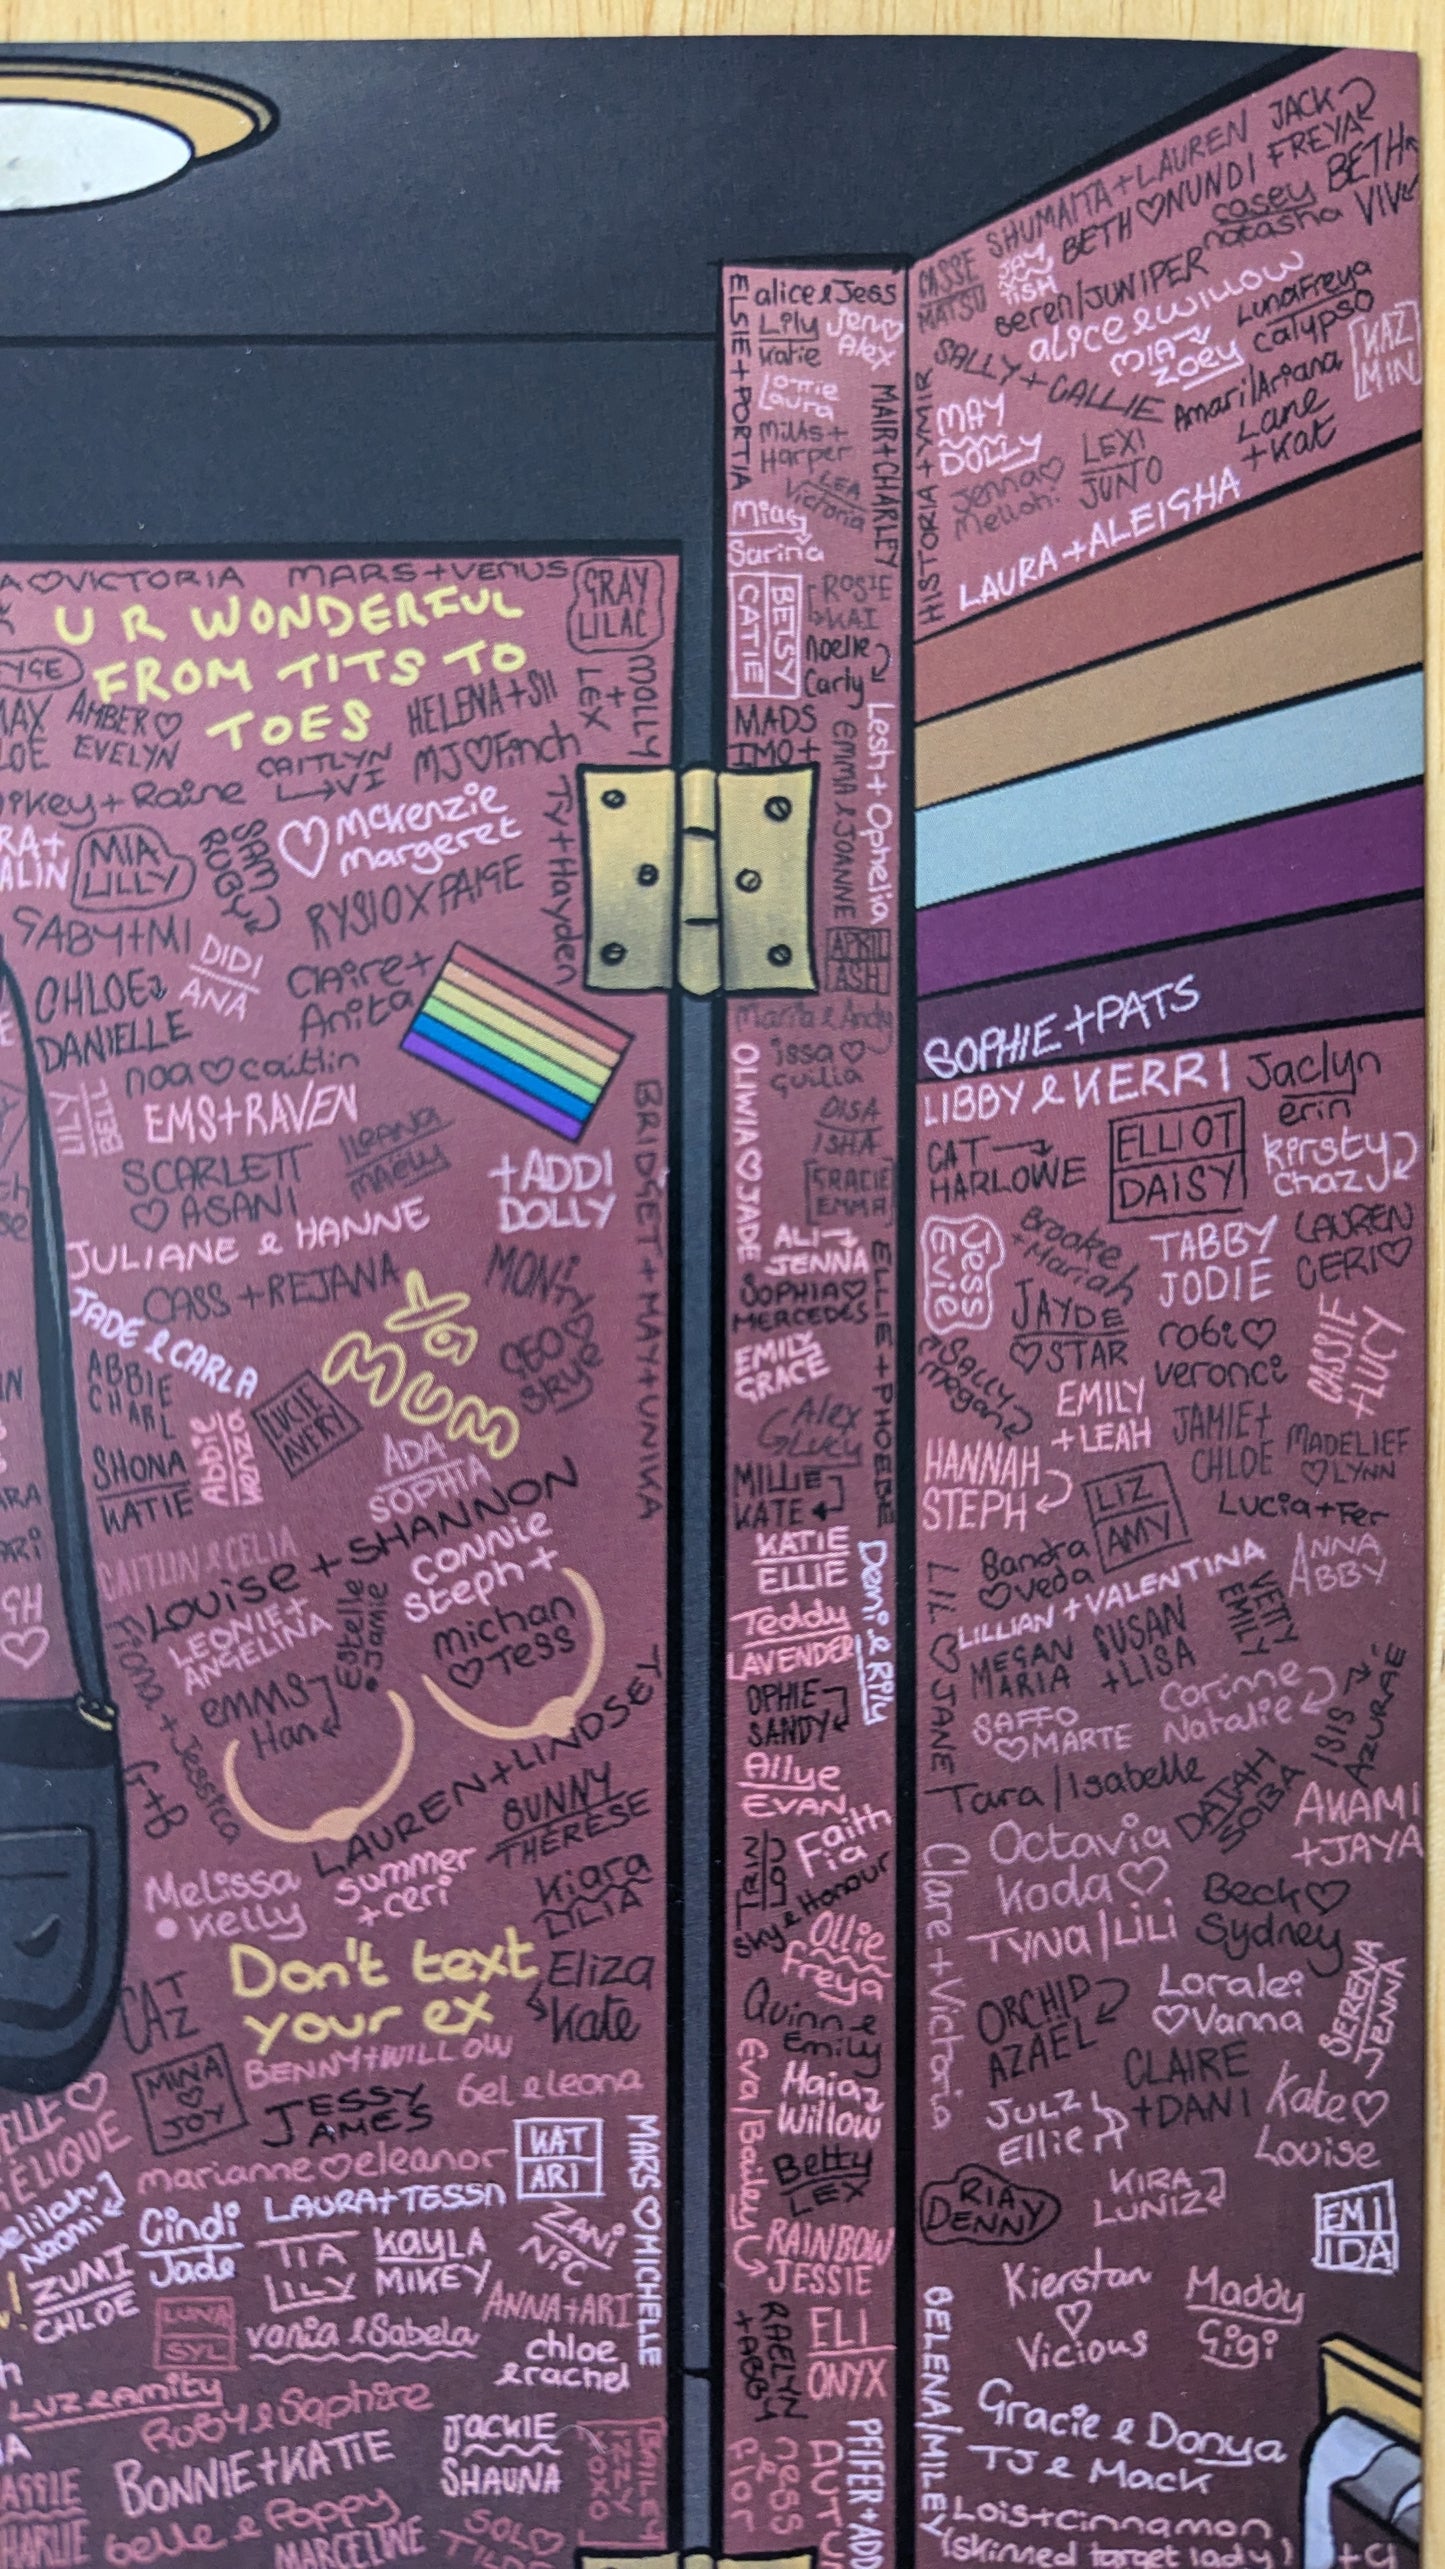 VICTORIA
MARS+VENUS
GRAY
LILAC
U R WONDERFUL
FROM TITS TO
TOES
AMBER♡
EVELYN
HELENA+SH
LEX
+
MOLLY
CAITLYN
↳VI
MJ♡Finch
+Raine
♡Mckenzie
Margeret
Ty+Hayden
MIA
LILLY
SAM
RUBY
RYSIOXPAIGE
GABY+MI
DIDI
ANA
CHLOE
DANIELLE
Claire+
Anita
noa♡caitlin
LILY
BELL
EMS+RAVEN
BRIDGET+MAY+UNIKA
SCARLETT
♡ASANI
ILEANA
MAELLY
+ADDI
DOLLY
JULIANE & HANNE
CASS+REJANA
MONI
JADE & CARLA
Yer
MUM
CEO♡
Skye
ABBIE
CHARL
LUCIE
AVERY
SHONA
KATIE
Abbie
Kenza
ADA
SOPHIA
CAITLIN & CELIA
LOUISE+SHANNON
CONNIE
Steph+
LEONIE+
ANGELINA
Estelle
Jamie
michan
♡Tess
Fiona+Jessica
emms
Han
G+B
LAUREN+LINDSE
BUNNY
THERESE
Melissa
•Kelly
summer
+ceri
Kiara
LILIA
Don't text
your ex
Eliza
Kate
CAT
Z
BENNY+WILLOW
MINA
♡
JOY
JESSY
JAMES
Bel & leona
KAT
ARI
MARS♡MICHELLE
marianne♡eleanor
Delilah
Naomi
Cindi
Jade
LAURA+TESSA
TIA
LILY
KAYLA
MIKEY
ZANI
NIC
ZUMI
CHLOE
ANNA+ARI
LUNA
SYL
vania & Sabela
chloe
&rachel
Luz & amity
Ruby & Saphire
BONNIE+KATIE
JACKIE
SHAUNA
Belle & Poppy
MARCELINE
SOL♡
ELSIE+PORTIA
alice & Jess
Lily
Katie
Jen♡
Alex
Lottie
Laura
Mills+
Harper
MAIR+CHARLEY
LEA
Victoria
Miacy
Sarina
BETSY
CATIE
ROSIE
↳KAI
Noelle
Carly
MADS
IMO+
EMMA & JOANNE
Lesh+Ophelia
APRIL
ASH
Marta & Andy
OLIWIA♡JADE
issa♡
guilia
DISA
ISHA
GRACIE
EMMA
ALI→
JENNA
SOPHIA♡
MERCEDES
ELLIE+PHOEBE
EMILY
GRACE
Alex
Glucy
MILLIE
KATE
KATIE
ELLIE
Deni & Rily
Teddy
LAVENDER
OPHIE
SANDY
Allye
EVAN
Faith
Fia
Sky & Honour
Ollie
Freya
Quinn &
Emily
Eva/Bailey
Maia
Willow
Betty
LEX
RAINBOW
JESSIE
RAELYNN
+ABBY
ELI
ONYX
PFIFER+ADD
SHUMAITA+LAUREN
JACK
FREYA
CASSE
MATSU
JAY
TISH
BETH♡NUNDI
casey
natasha
BETH
VIV
Beren/JUNIPER
alice & willow
LunaFreya
calypso
MIA
Zoey
KAZ
MIN
SALLY+CALLIE
Amari/Ariana
HISTORIA+YMIR
MAY
DOLLY
LEXI
JUNO
Lane
+Kat
Jenna♡
LAURA+ALEIGHA
SOPHIE+PATS
LIBBY & KERRI
Jaclyn
erin
CAT→
HARLOWE
ELLIOT
DAISY
Kirsty
Chazy
Jess
Evie
Brooke
+Mariah
TABBY
JODIE
LAUREN
CERI♡
JAYDE
♡STAR
robi♡
veronci
CASSIE
+LUCY
SALLY
Megan
EMILY
+LEAH
JAMIE+
CHLOE
MADELIEF
♡LYNN
HANNAH
STEPH
LIZ
AMY
Lucia+Fer
Bandra
♡veda
ANNA
ABBY
LIL♡JANE
LILLIAN+VALENTINA
YETTY
EMILY
MEGAN
MARIA
SUSAN
+LISA
SAFFO
♡MARTE
Corinne
Natalie
ISIS
AZURAE
Tara/Isabelle
DATAH
SOBA
AKAMI
+JAYA
Clare+Victoria
Octavia
Koda♡
Beck♡
Sydney
TYNA/LiLi
ORCHID
AZAEL
Loralei
♡Vanna
SERENA
JENNA
CLAIRE
+DANI
JULZ
Ellie
Kate♡
Louise
RIA
DENNY
KIRA
LUNIZ
EMI
IDA
Kierstan
♡
Vicious
Maddy
Gigi
BELENA/MILEY
Gracie & Donya
TJ & Mack
Lois+Cinnamon
(skinned target lady)